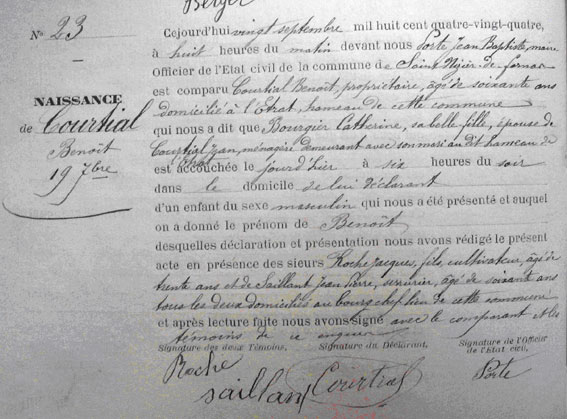 Berger
N° 23
NAISSANCE
de Courtial
Benoit
19 7bre
Cejourd'hui vingt septembre mil huit cent quatre-vingt-quatre,
à huit heures du matin devant nous Porte Jean Baptiste, maire
Officier de l'Etat civil de la commune de Saint Nizier de fornas
est comparu Courtial Benoît, propriétaire, âgé de soixante ans
domicilié à l'Etrat hameau de cette commune
qui nous a dit que Bourgier Catherine, sa belle fille, épouse de
Courtial Jean, ménagère demeurant avec son mari au dit hameau de
l'Etrat
est accouchée le jourd'hier à six heures du soir
dans le domicile de lui déclarant
d'un enfant du sexe masculin qui nous a été présenté et auquel
on a donné le prénom de Benoît
desquelles déclaration et présentation nous avons rédigé le présent
acte en présence des sieurs Roche Jacques, fils, cultivateur, âgé de
trente ans et de Saillant Jean Pierre, serrurier, âgé de soixante ans
tous les deux domiciliés au bourg chef lieu de cette commune
et après lecture faite nous avons signé avec le comparant et les
témoins de ce enquis
Signature des deux Témoins, Signature du Déclarant, Signature de l'Officier
de l'Etat civil,
Roche
Saillant Courtial Porte